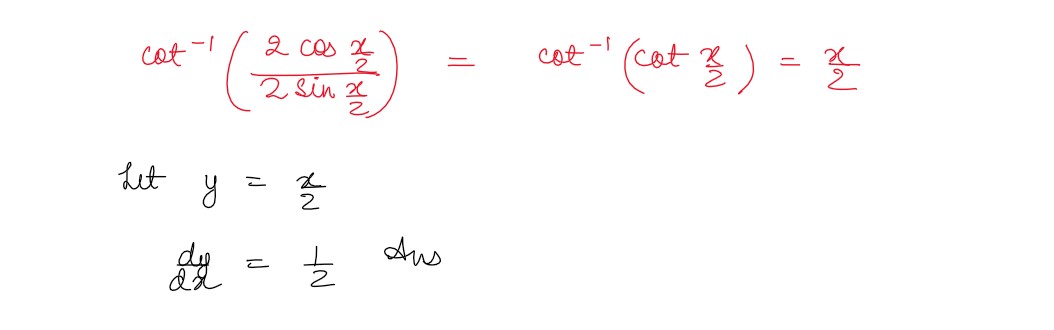 cot⁻¹ (2 cos x/2 / 2 sin x/2) = cot⁻¹ (cot x/2) = x/2
Let y = x/2
dy/dx = 1/2 Ans